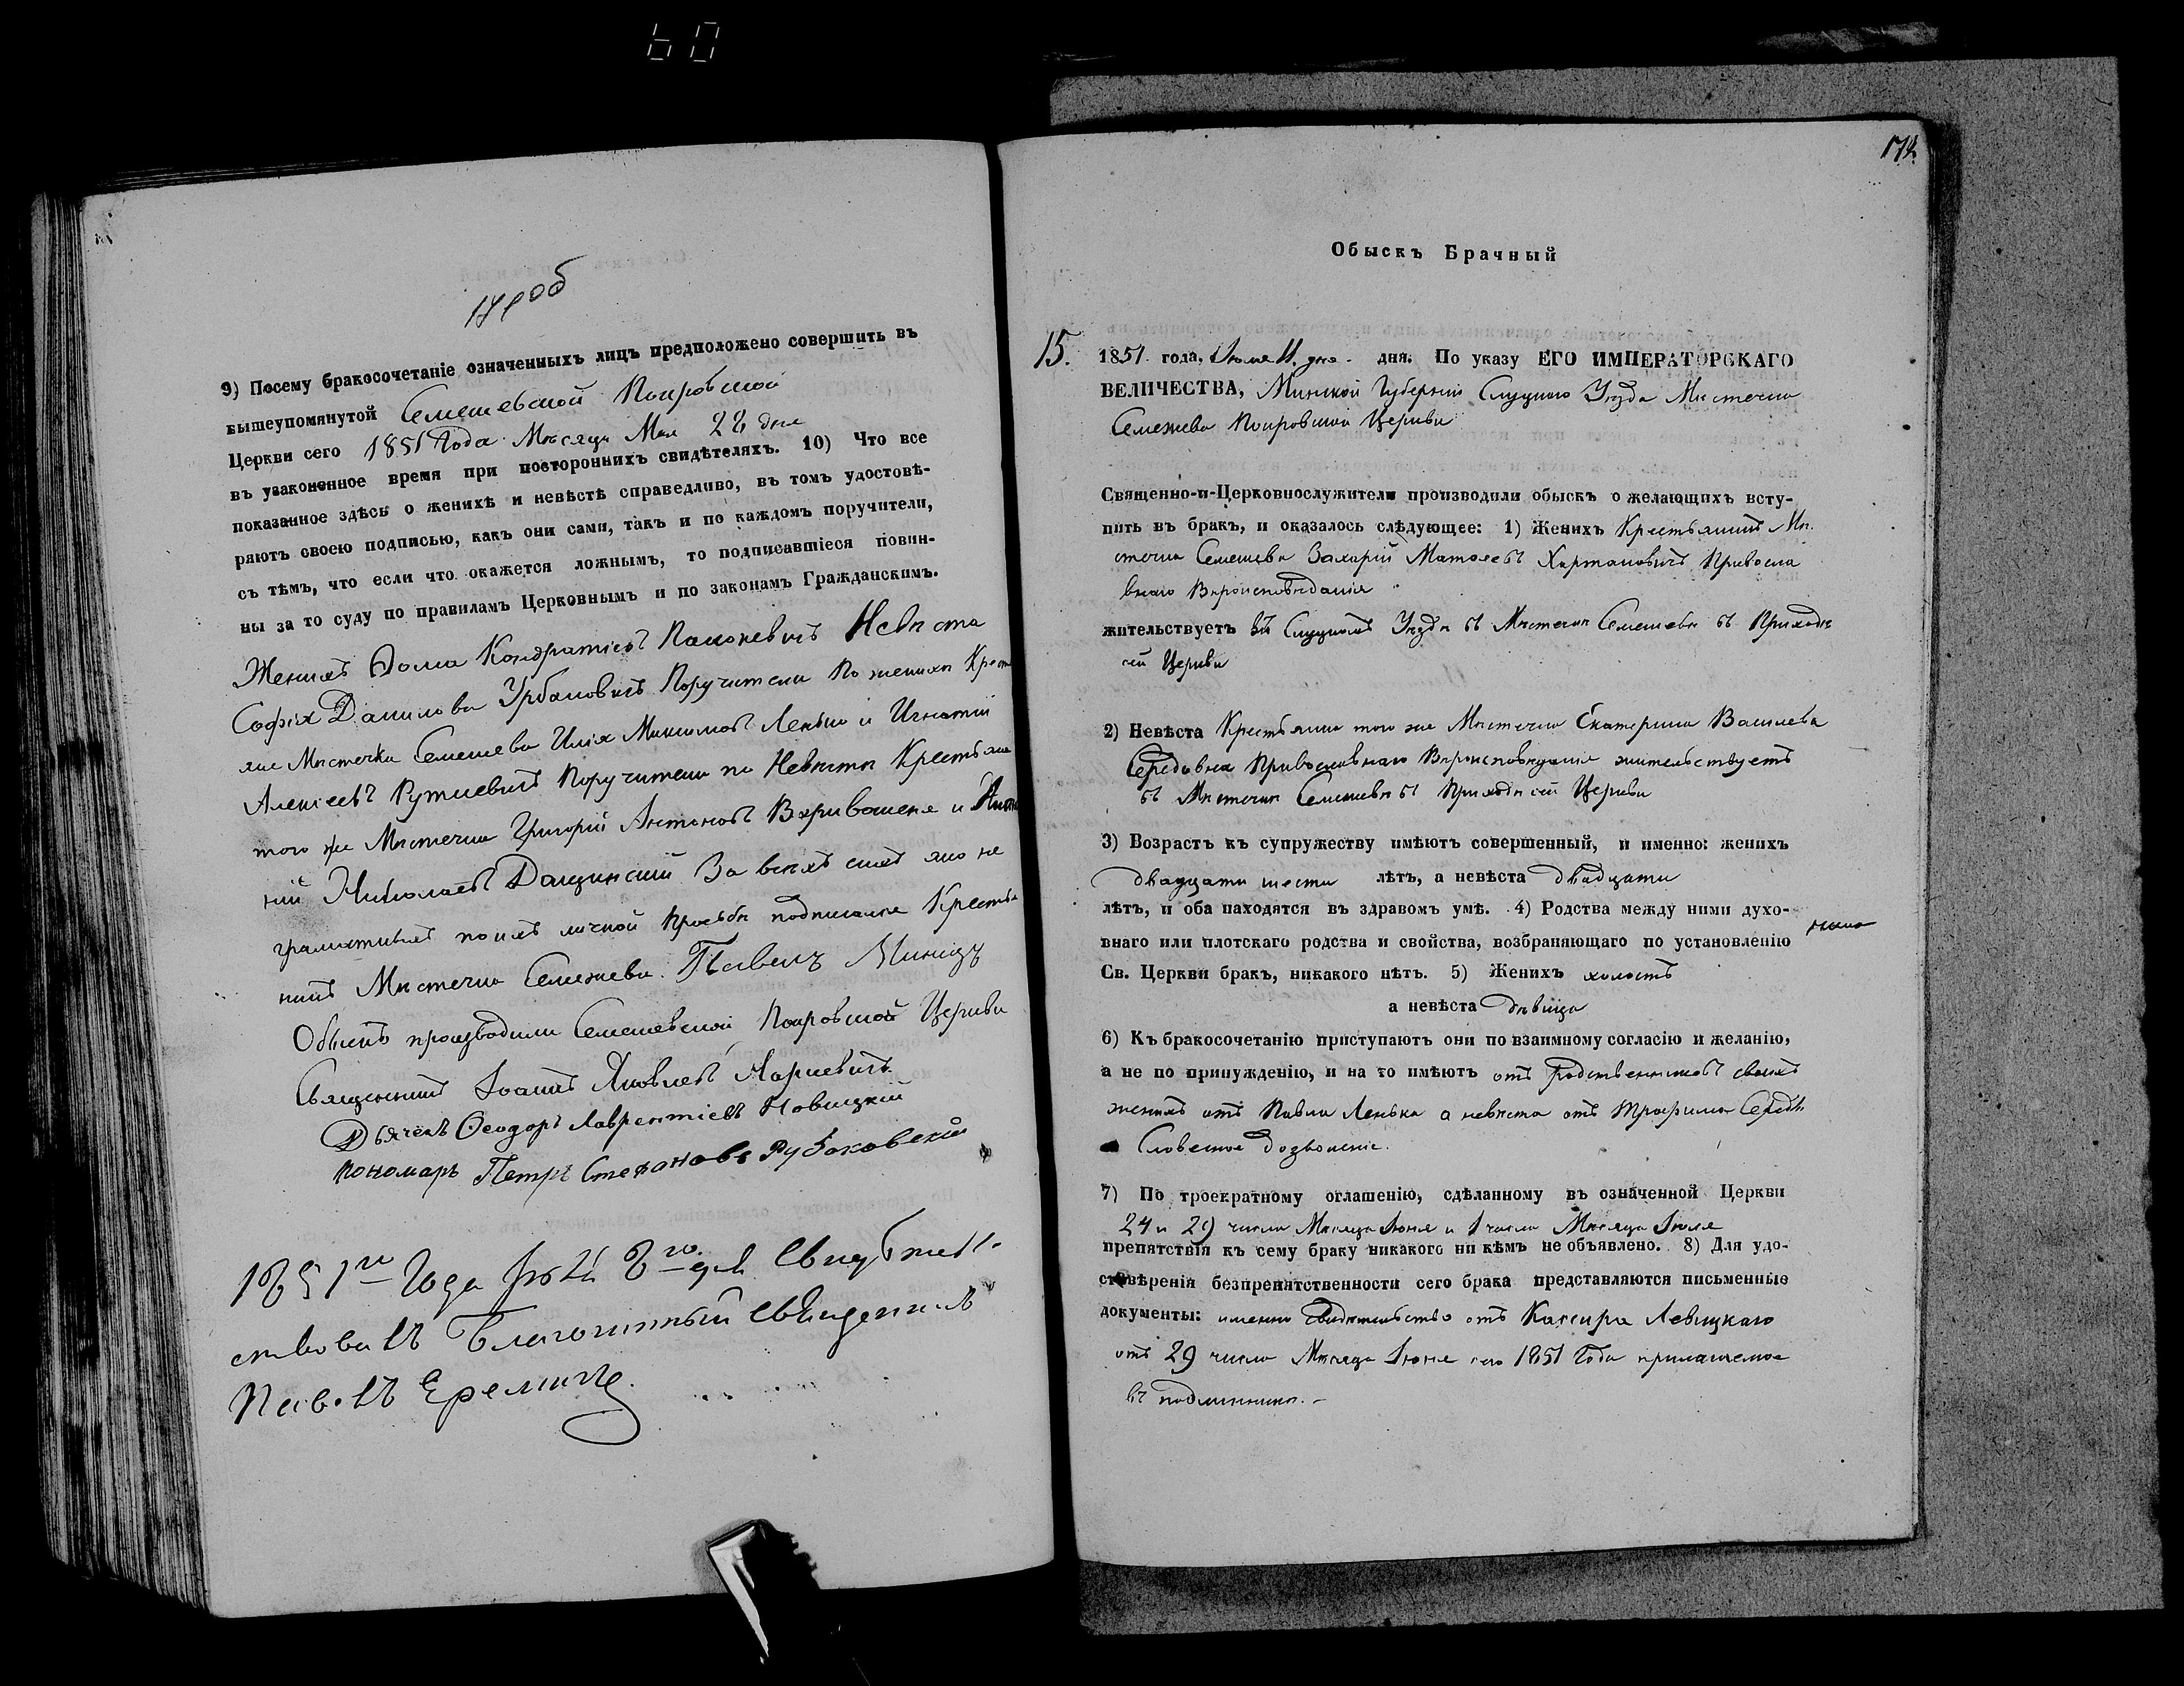 60
171 об
9) Посему бракосочетаніе означенныхъ лицъ предположено совершить въ
вышеупомянутой Семежевской Покровской
Церкви сего 1851 Года Мѣсяца Мая 28 дня
въ узаконенное время при постороннихъ свидѣтеляхъ. 10) Что все
показанное здѣсь о женихѣ и невѣстѣ справедливо, въ томъ удостовѣ-
ряютъ своею подписью, какъ они сами, такъ и по каждомъ поручители,
съ тѣмъ, что если что окажется ложнымъ, то подписавшіеся повин-
ны за то суду по правиламъ Церковнымъ и по законамъ Гражданскимъ.
Женихъ Ѳома Кондратіевъ Невѣста
Софія Данилова Урбановичъ Поручители По женихѣ Крестья
яне Мѣстечка Семежева Илія Максимовъ Ленько и Игнатій
Алексѣевъ Поручители по Невѣстѣ Крестьяне
того же Мѣстечка Григорій Антоновъ и
ній Николаевъ Дащинскій За всѣхъ сихъ яко не
грамотныхъ по ихъ личной Просьбѣ подписался Крестья
нинъ Мѣстечка Семежева Павелъ
Обыскъ производили Семежевской Покровской Церкви
Священникъ Іоаннъ Яковлевъ
Дьячекъ Ѳеодоръ Лаврентіевъ Новицкій
Пономарь Петръ Стефановъ Рубаковскій
1851го Года дня Свидѣтель-
ствовалъ Благочинный Священникъ
Павелъ Еремичъ
172
Обыскъ Брачный
15. 1851 года, Іюля 11. дня. дня. По указу ЕГО ИМПЕРАТОРСКАГО
ВЕЛИЧЕСТВА, Минской Губерніи Слуцкаго Уѣзда Мѣстечка
Семежева Покровской Церкви
Священно-и-Церковнослужители производили обыскъ о желающихъ всту-
пить въ бракъ, и оказалось слѣдующее: 1) Женихъ Крестьянинъ Мѣ
стечка Семежева Захарій Матѳеевъ Хартановичъ Правосла
внаго Вѣроисповѣданія
жительствуетъ въ Слуцкомъ Уѣздѣ въ Мѣстечкѣ Семежевѣ въ Приходѣ
сей Церкви
2) Невѣста Крестьянка того же Мѣстечка Екатерина Васильева
Середовна Православнаго Вѣроисповѣданія жительствуетъ
въ Мѣстечкѣ Семежевѣ въ Приходѣ сей Церкви
3) Возрастъ къ супружеству имѣютъ совершенный, и именно: женихъ
двадцати шести лѣтъ, а невѣста двадцати
лѣтъ, и оба находятся въ здравомъ умѣ. 4) Родства между ними духо-
внаго или плотскаго родства и свойства, возбраняющаго по установленію
Св. Церкви бракъ, никакого нѣтъ. 5) Женихъ холостъ
а невѣста дѣвица
6) Къ бракосочетанію приступаютъ они по взаимному согласію и желанію,
а не по принужденію, и на то имѣютъ отъ родственниковъ своихъ
женихъ отъ Павла Ленька а невѣста отъ Трофима Середы
Словесное дозволеніе.
7) По троекратному оглашенію, сдѣланному въ означенной Церкви
24 и 29 числа Мѣсяца Іюня и 1 числа Мѣсяца Іюля
препятствія къ сему браку никакого ни кѣмъ не объявлено. 8) Для удо-
стовѣренія безпрепятственности сего брака представляются письменные
документы: именно Свидѣтельство отъ Кассира Левицкаго
отъ 29 числа Мѣсяца Іюня сего 1851 Года прилагаемое
въ подлинникѣ.-